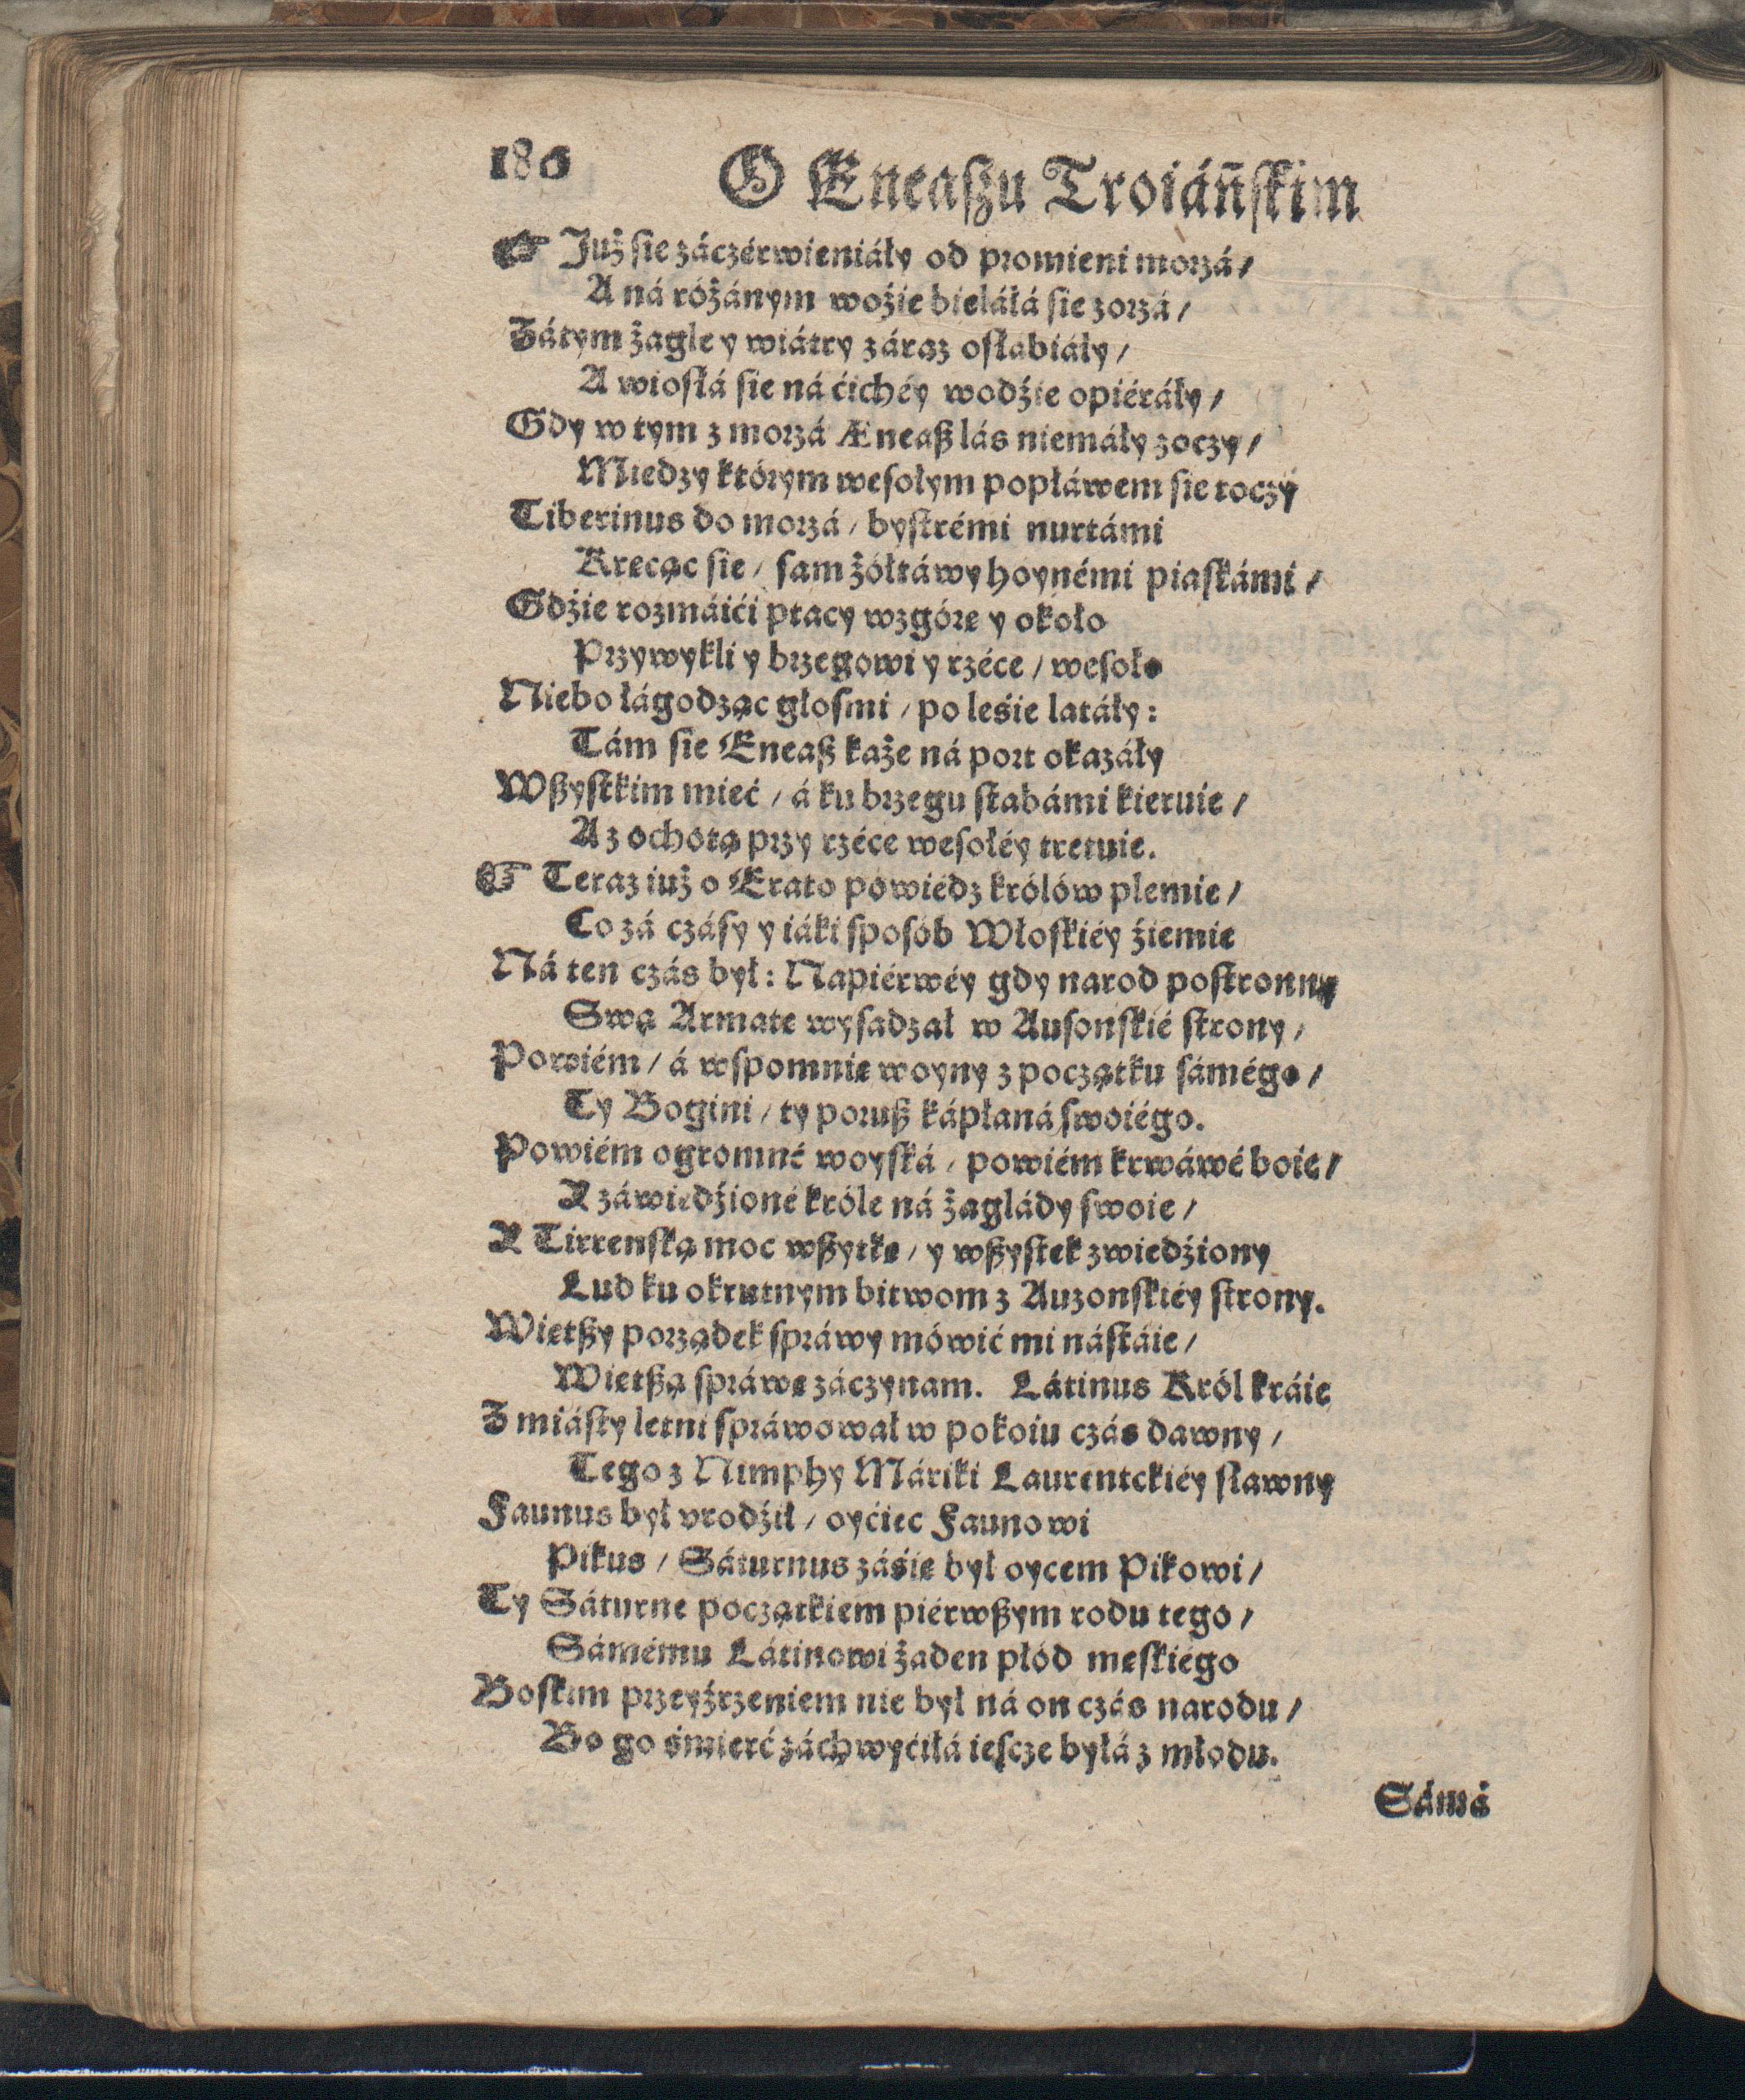 186 O Eneaſzu Troiáńſkim
☞ Już ſie záczérwieniáły od promieni morzá /
A ná różánym woźie bieláłá ſie zorzá /
Zátym żagle y wiátry záraz oſłabiáły /
A wioſłá ſie ná ćichéy wodźie opiéráły /
Gdy w tym z morzá Æneaß lás niemáły zoczy /
Miedzy którym weſołym popłáwem ſie toczy
Tiberinus do morzá / byſtrémi nurtámi
Kręcąc ſie / ſam żółtáwy hoynémi piaſkámi /
Gdźie rozmáići ptacy wzgórę y około
Przywykli y brzegowi y rzéce / weſoło
Niebo łágodząc głoſmi / po leśie latáły :
Tám ſie Eneaß każe ná port okazáły
Wßyſtkim mieć / á ku brzegu ſtabámi kieruie /
A z ochotą przy rzéce weſołéy tretuie.
☞ Teraz iuż o Erato powiédz królów plemie /
Co zá czáſy y iáki ſpoſób Włoſkiéy źiemie
Ná ten czás był : Napiérwéy gdy narod poſtronny
Swą Armatę wyſadzał w Auſonſkié ſtrony /
Powiém / á wſpomnię woyny z początku ſámégo /
Ty Bogini / ty poruß kápłaná ſwoiégo.
Powiém ogromné woyſká / powiém krwáwé boie /
Y záwiedźioné króle ná żagłády ſwoie /
Y Tirrenſką moc wßytkę / y wßyſtek zwiedźiony
Lud ku okrutnym bitwom z Auzonſkiéy ſtrony.
Więtßy porządek ſpráwy mówić mi náſtáie /
Więtßą ſpráwę záczynam. Látinus Król kráie
Z miáſty letni ſpráwował w pokoiu czás dawny /
Tego z Nimphy Máriki Laurentckiéy ſławny
Faunus był vrodźił / oyćiec Faunowi
Pikus / Sáturnus záśię był oycem Pikowi /
Ty Sáturne początkiem piérwßym rodu tego /
Sámému Látinowi żaden płód męſkiégo
Boſkim przeyźrzeniem nie był ná on czás narodu /
Bo go śmierć záchwyćiłá ieſcze byłá z młodu.
Sámá